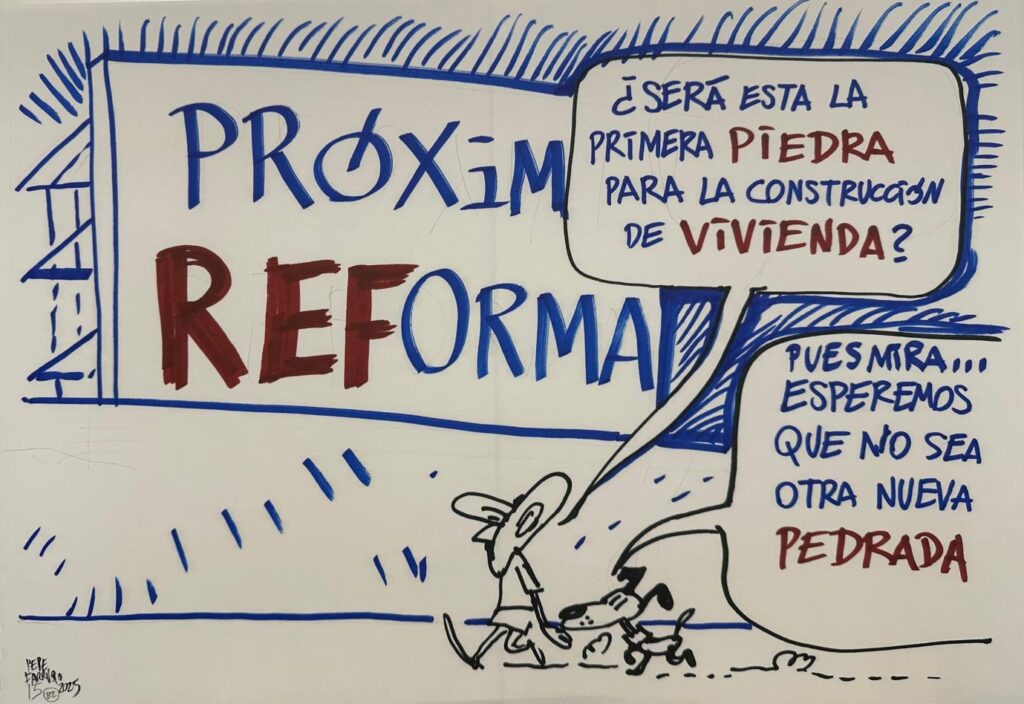 PRÓXIM
REFORMA
¿SERÁ ESTA LA
PRIMERA PIEDRA
PARA LA CONSTRUCCIÓN
DE VIVIENDA?
PUES MIRA...
ESPEREMOS
QUE NO SEA
OTRA NUEVA
PEDRADA
PEPE
FARRUQO
15 02 2025